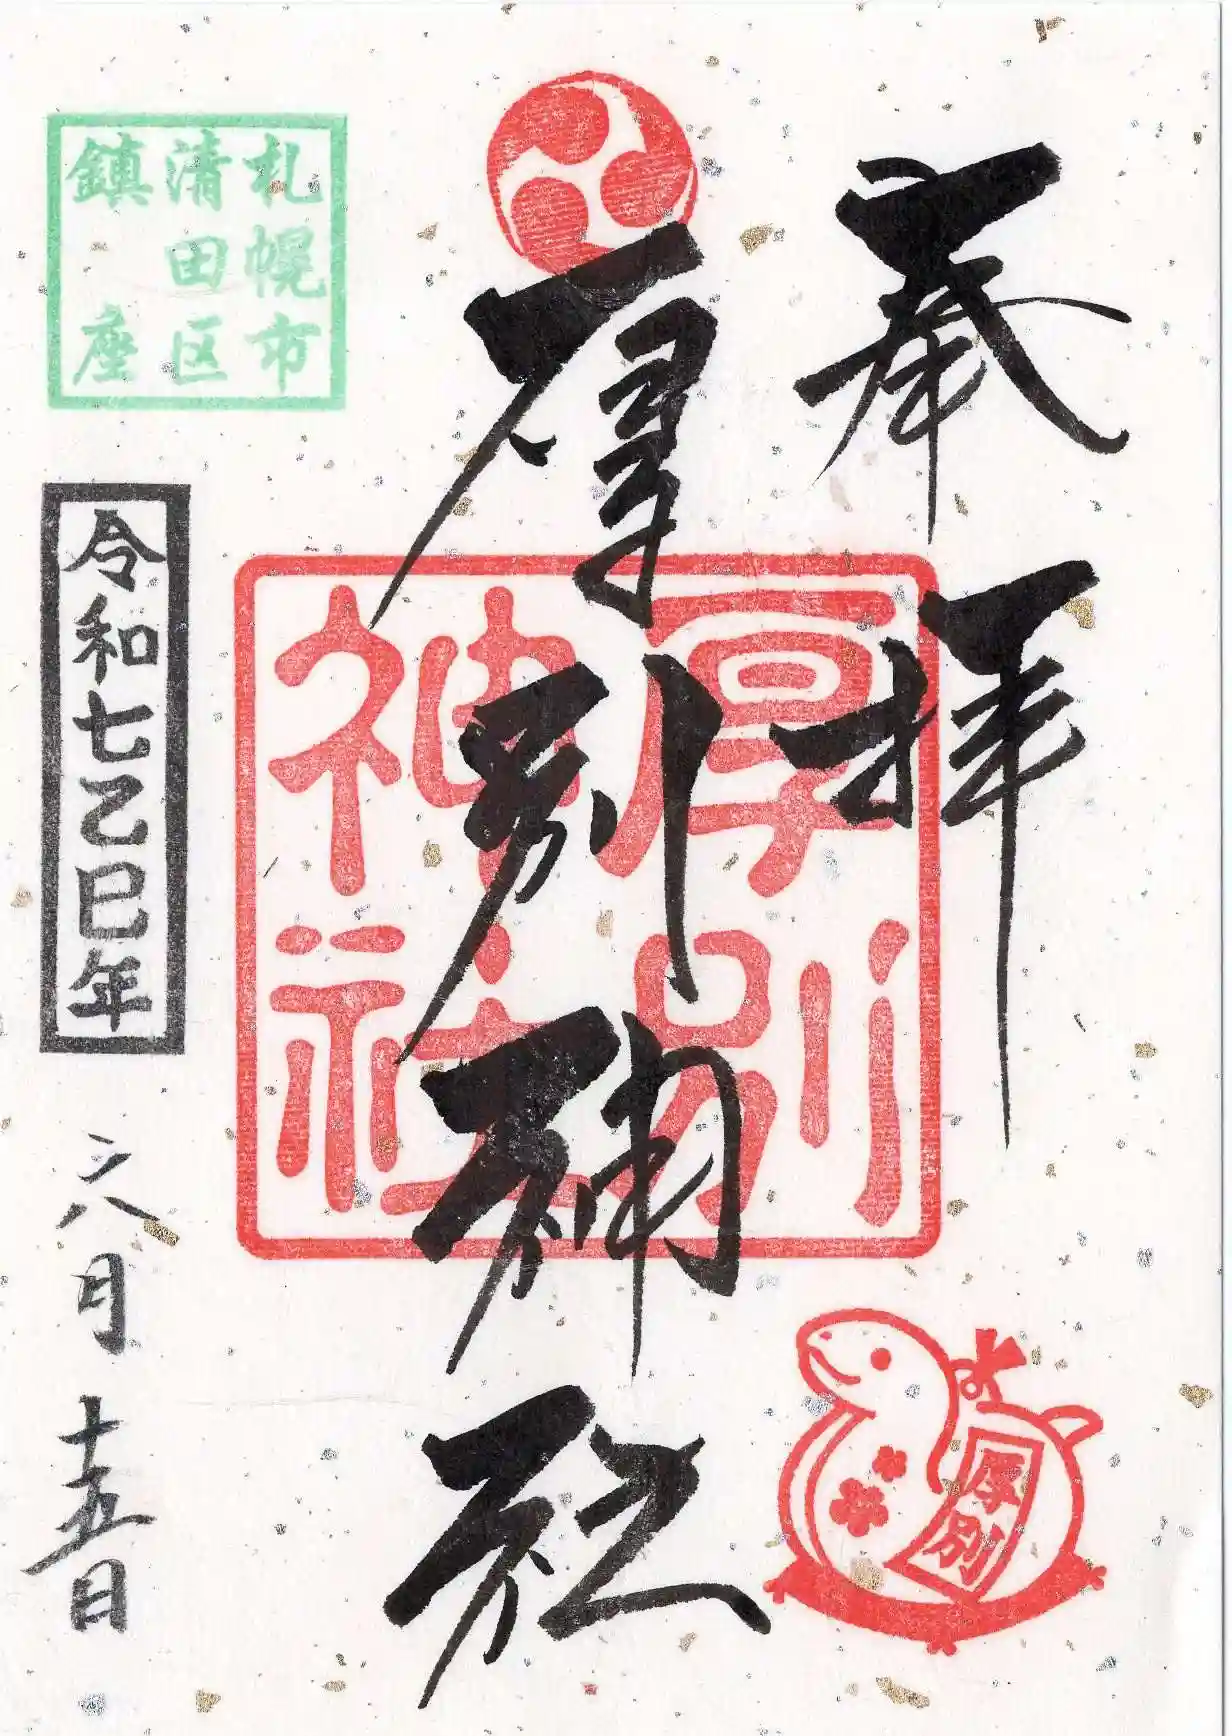 奉拝
厚別神社
厚別
神社
厚別
札幌市
清田区
鎮座
令和七乙巳年
六月十五日